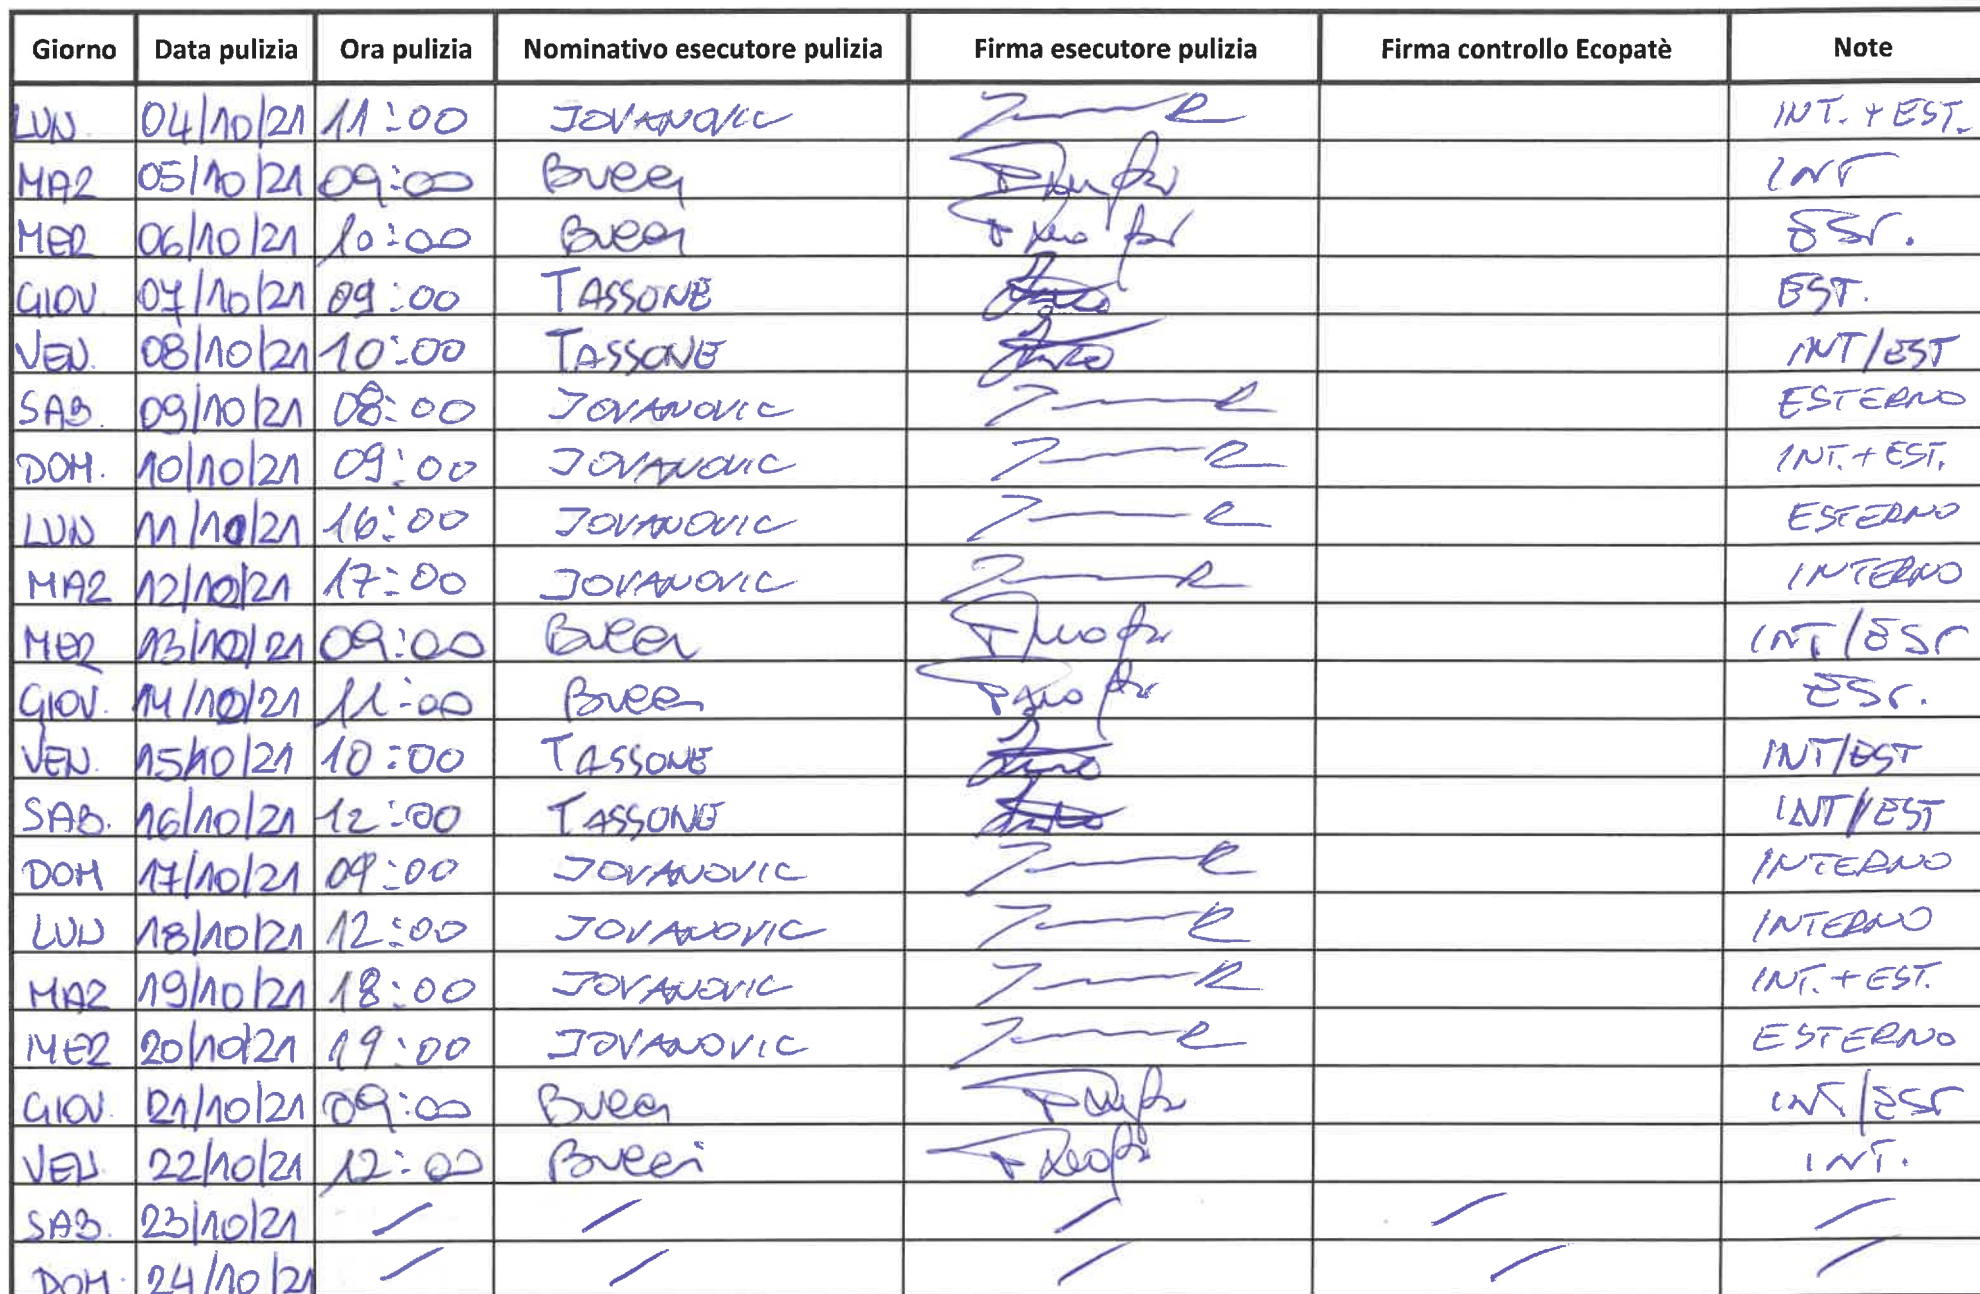 Giorno Data pulizia Ora pulizia Nominativo esecutore pulizia Firma esecutore pulizia Firma controllo Ecopatè Note
LUN 04/10/21 11:00 JOVANOVIC INT. + EST.
MAR 05/10/21 09:00 Bucci INT
MER 06/10/21 10:00 Bucci EST.
GIOV 07/10/21 09:00 TASSONE EST.
VEN. 08/10/21 10:00 TASSONE INT/EST
SAB. 09/10/21 08:00 JOVANOVIC ESTERNO
DOM. 10/10/21 09:00 JOVANOVIC INT. + EST.
LUN 11/10/21 16:00 JOVANOVIC ESTERNO
MAR 12/10/21 17:00 JOVANOVIC INTERNO
MER 13/10/21 09:00 Bucci INT/EST
GIOV. 14/10/21 11:00 Bucci EST.
VEN. 15/10/21 10:00 TASSONE INT/EST
SAB. 16/10/21 12:00 TASSONE INT/EST
DOM 17/10/21 09:00 JOVANOVIC INTERNO
LUN 18/10/21 12:00 JOVANOVIC INTERNO
MAR 19/10/21 18:00 JOVANOVIC INT. + EST.
MER 20/10/21 19:00 JOVANOVIC ESTERNO
GIOV. 21/10/21 09:00 Bucci INT/EST
VEN 22/10/21 12:00 Bucci INT.
SAB. 23/10/21 / / / / /
DOM. 24/10/21 / / / / /